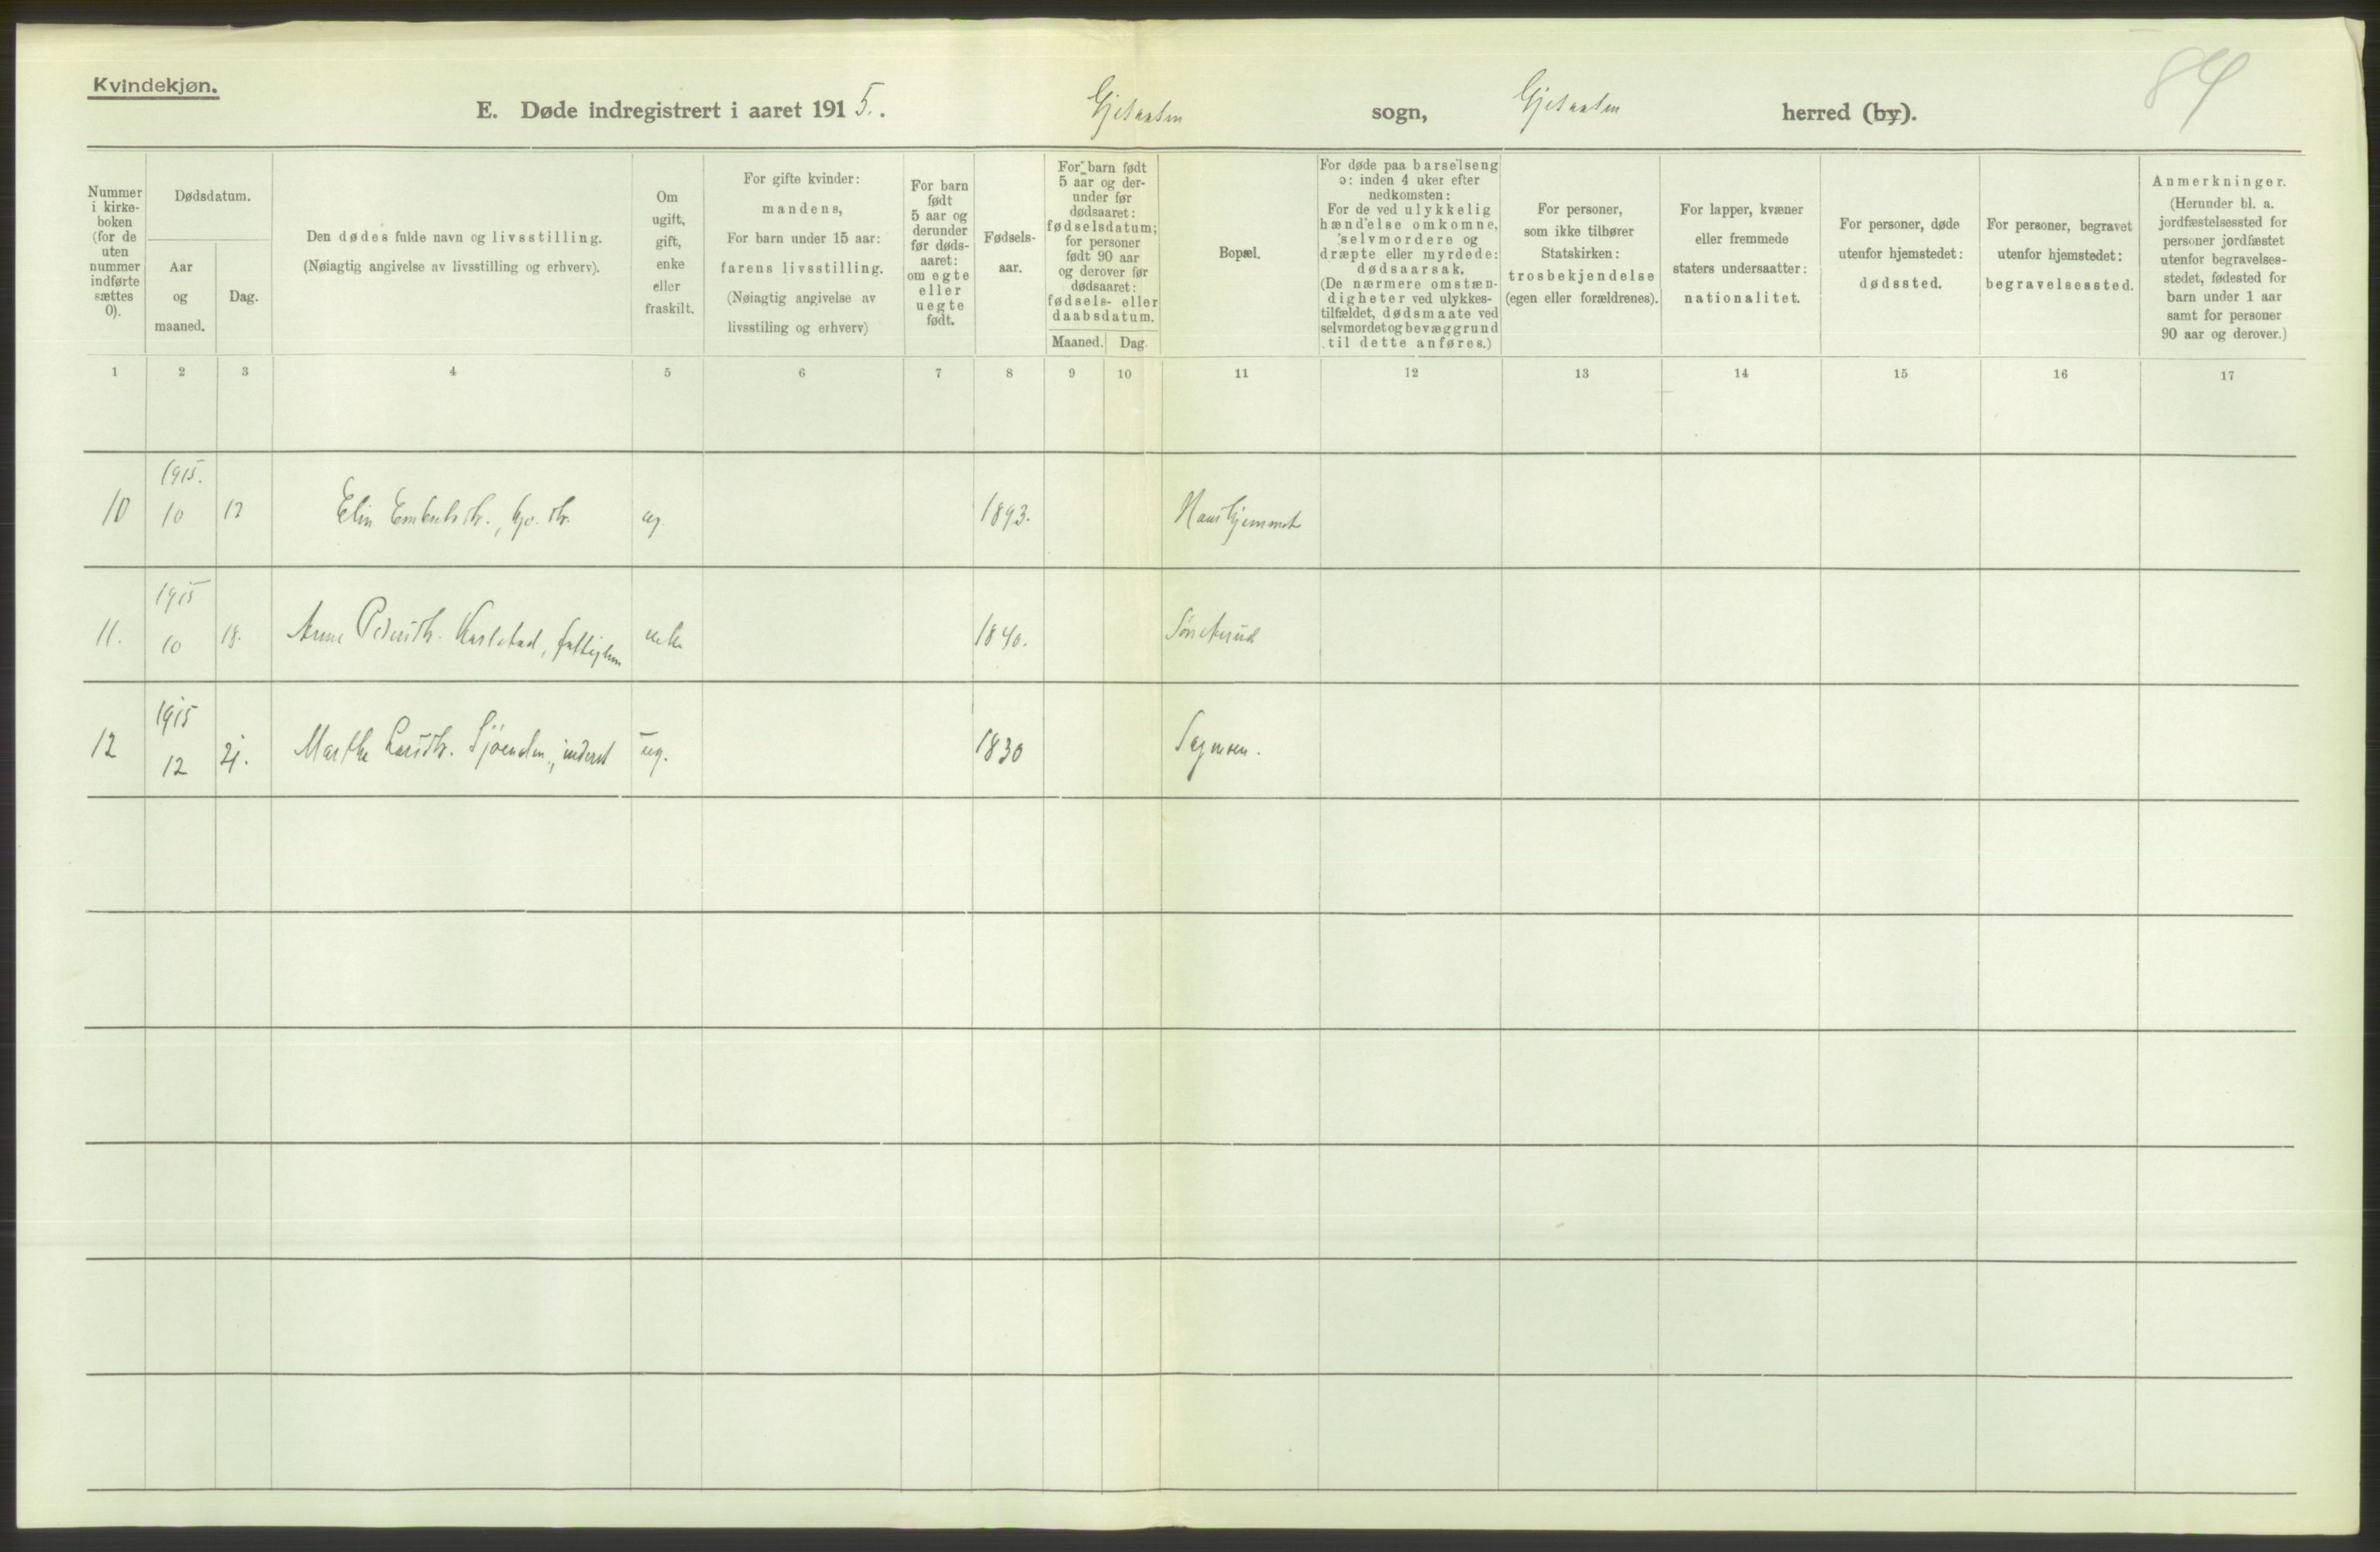 Kvindekjøn.
84
E. Døde indregistrert i aaret 1915. Gjesaasen sogn, Gjesaasen herred (by).
Nummer i kirkeboken (for de uten nummer indførte sættes 0).
Dødsdatum.
Aar og maaned.
Dag.
Den dødes fulde navn og livsstilling.
(Nøiagtig angivelse av livsstilling og erhverv).
Om ugift, gift, enke eller fraskilt.
For gifte kvinder:
mandens,
For barn under 15 aar:
farens livsstilling.
(Nøiagtig angivelse av
livsstiling og erhverv)
For barn født 5 aar og derunder før dødsaaret: om egte eller uegte født.
Fødselsaar.
For barn født 5 aar og derunder før dødsaaret: fødselsdatum; for personer født 90 aar og derover før dødsaaret: fødsels- eller daabsdatum.
Maaned. Dag.
Bopæl.
For døde paa barselseng
ɔ: inden 4 uker efter
nedkomsten:
For de ved ulykkelig
hændelse omkomne,
selvmordere og
dræpte eller myrdede:
dødsaarsak.
(De nærmere omstæn-
digheter ved ulykkes-
tilfældet, dødsmaate ved
selvmordet og bevæggrund
til dette anføres.)
For personer,
som ikke tilhører
Statskirken:
trosbekjendelse
(egen eller forældrenes).
For lapper, kvæner
eller fremmede
staters undersaatter:
nationalitet.
For personer, døde
utenfor hjemstedet:
dødssted.
For personer, begravet
utenfor hjemstedet:
begravelsessted.
Anmerkninger.
(Herunder bl. a.
jordfæstelsessted for
personer jordfæstet
utenfor begravelses-
stedet, fødested for
barn under 1 aar
samt for personer
90 aar og derover.)
1 2 3 4 5 6 7 8 9 10 11 12 13 14 15 16 17
1915.
10 10 12 Elin Embretsdtr., ug. 1893.
1915
11. 10 18. Anne Pedersdtr. Karlstad, fattiglem enke 1840. Sønsterud
1915
12 12 21. Marthe Larsdtr. Sjøenden, inderst ug. 1830 Sagmoen.